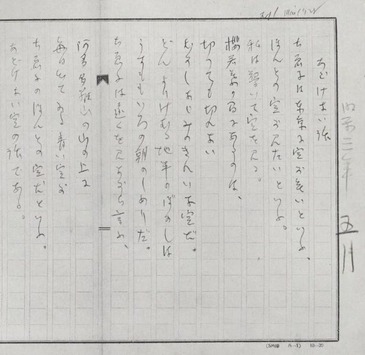 昭和三年 五月
あどけない話
ちゑ子は東京に空が無いといふ。
ほんとの空が見たいといふ。
私は驚いて空を見る。
桜若葉の間にあるのは、
切つても切れない
むかしなじみのきれいな空だ。
どんよりけむる地平のぼかしは
うすももいろの朝のしめりだ。
ちゑ子は遠くを見ながら言ふ。
阿多多羅山の山の上に
毎日出てゐる青い空が
ちゑ子のほんとの空だといふ。
あどけない空の話である。